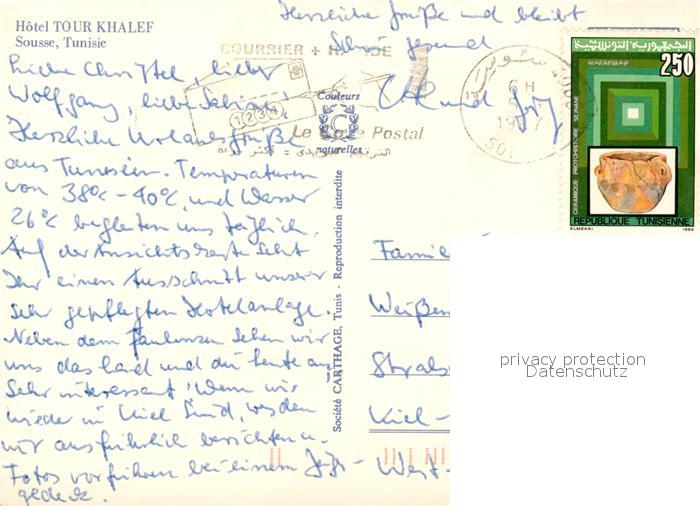 Hôtel TOUR KHALEF
Sousse, Tunisie
Herzliche Grüße und bleibt
schön gesund
COURRIER + RAPIDE
1234
Le Code Postal
Couleurs
C
naturelles
250
CERAMIQUE PROTOHISTOIRE SEJNANE
REPUBLIQUE TUNISIENNE
ELMEKKI
1985
Liebe Christel, lieber
Wolfgang, liebe
Herzliche Urlaubsgrüße
aus Tunesien. Temperaturen
von 38°C - 40°C, und Wasser
26°C begleiten uns täglich.
Auf der Ansichtskarte seht
Ihr einen Ausschnitt unserer
sehr gepflegten Hotelanlage.
Neben dem Faulenzen sehen wir
uns das Land und die Leute an.
Sehr interessant! Wenn wir
wieder in Kiel sind, werden
wir ausführlich berichten u.
Fotos vorführen bei einem
gedeck.
und Jörg
Société CARTHAGE, Tunis - Reproduction interdite
Famil
Weißen
Strals
Kiel-
West-
privacy protection
Datenschutz